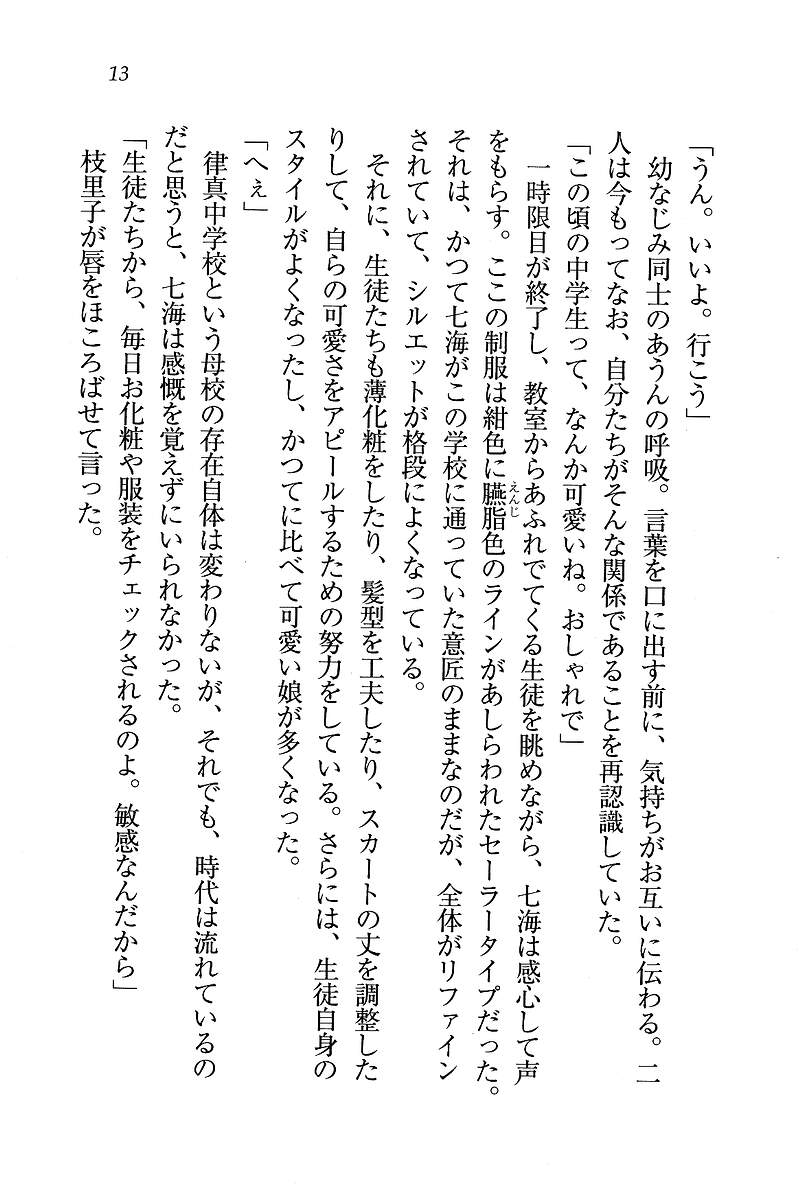 13
「うん。いいよ。行こう」
幼なじみ同士のあうんの呼吸。言葉を口に出す前に、気持ちがお互いに伝わる。二
人は今もってなお、自分たちがそんな関係であることを再認識していた。
「この頃の中学生って、なんか可愛いね。おしゃれで」
一時限目が終了し、教室からあふれでてくる生徒を眺めながら、七海は感心して声
をもらす。ここの制服は紺色に臙脂色のラインがあしらわれたセーラータイプだった。
えんじ
それは、かつて七海がこの学校に通っていた意匠のままなのだが、全体がリファイン
されていて、シルエットが格段によくなっている。
それに、生徒たちも薄化粧をしたり、髪型を工夫したり、スカートの丈を調整した
りして、自らの可愛さをアピールするための努力をしている。さらには、生徒自身の
スタイルがよくなったし、かつてに比べて可愛い娘が多くなった。
「へぇ」
律真中学校という母校の存在自体は変わりないが、それでも、時代は流れているの
だと思うと、七海は感慨を覚えずにいられなかった。
「生徒たちから、毎日お化粧や服装をチェックされるのよ。敏感なんだから」
枝里子が唇をほころばせて言った。